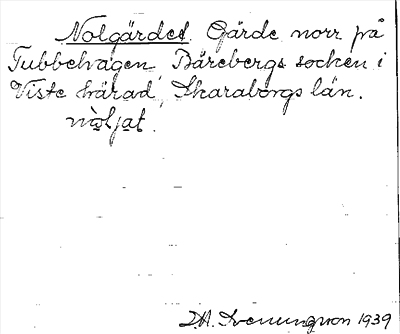 Nolgärdet. Gärde norr på
Tubbehagen, Bärebergs socken i
Viste härad, Skaraborgs län.
D.A. Svenungson 1939